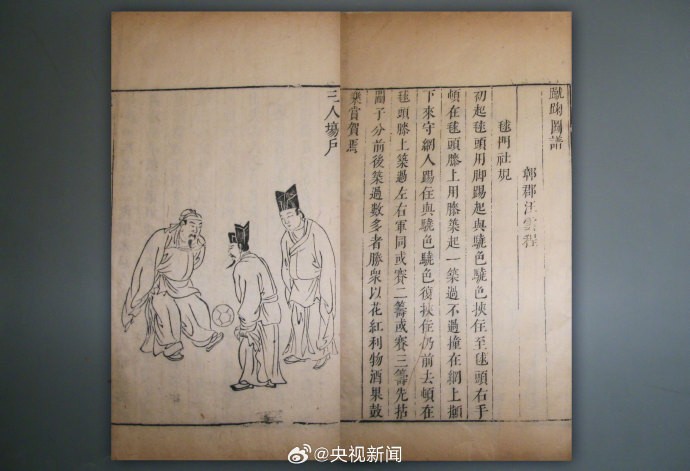 蹴踘圖譜
鄣郡汪雲程
毬門社規
初起毬頭用脚踢起與驍色驍色挾住至毬頭右手
頓在毬頭膝上用膝築起一築過不過撞在網上攧
下來守網人踢住與驍色驍色復挾住仍前去頓在
毬頭膝上築過左右軍同或賽二籌或賽三籌先拈
鬮子分前後築過數多者勝衆以花紅利物酒果鼓
樂賞賀焉
三人塲戶
@央视新闻